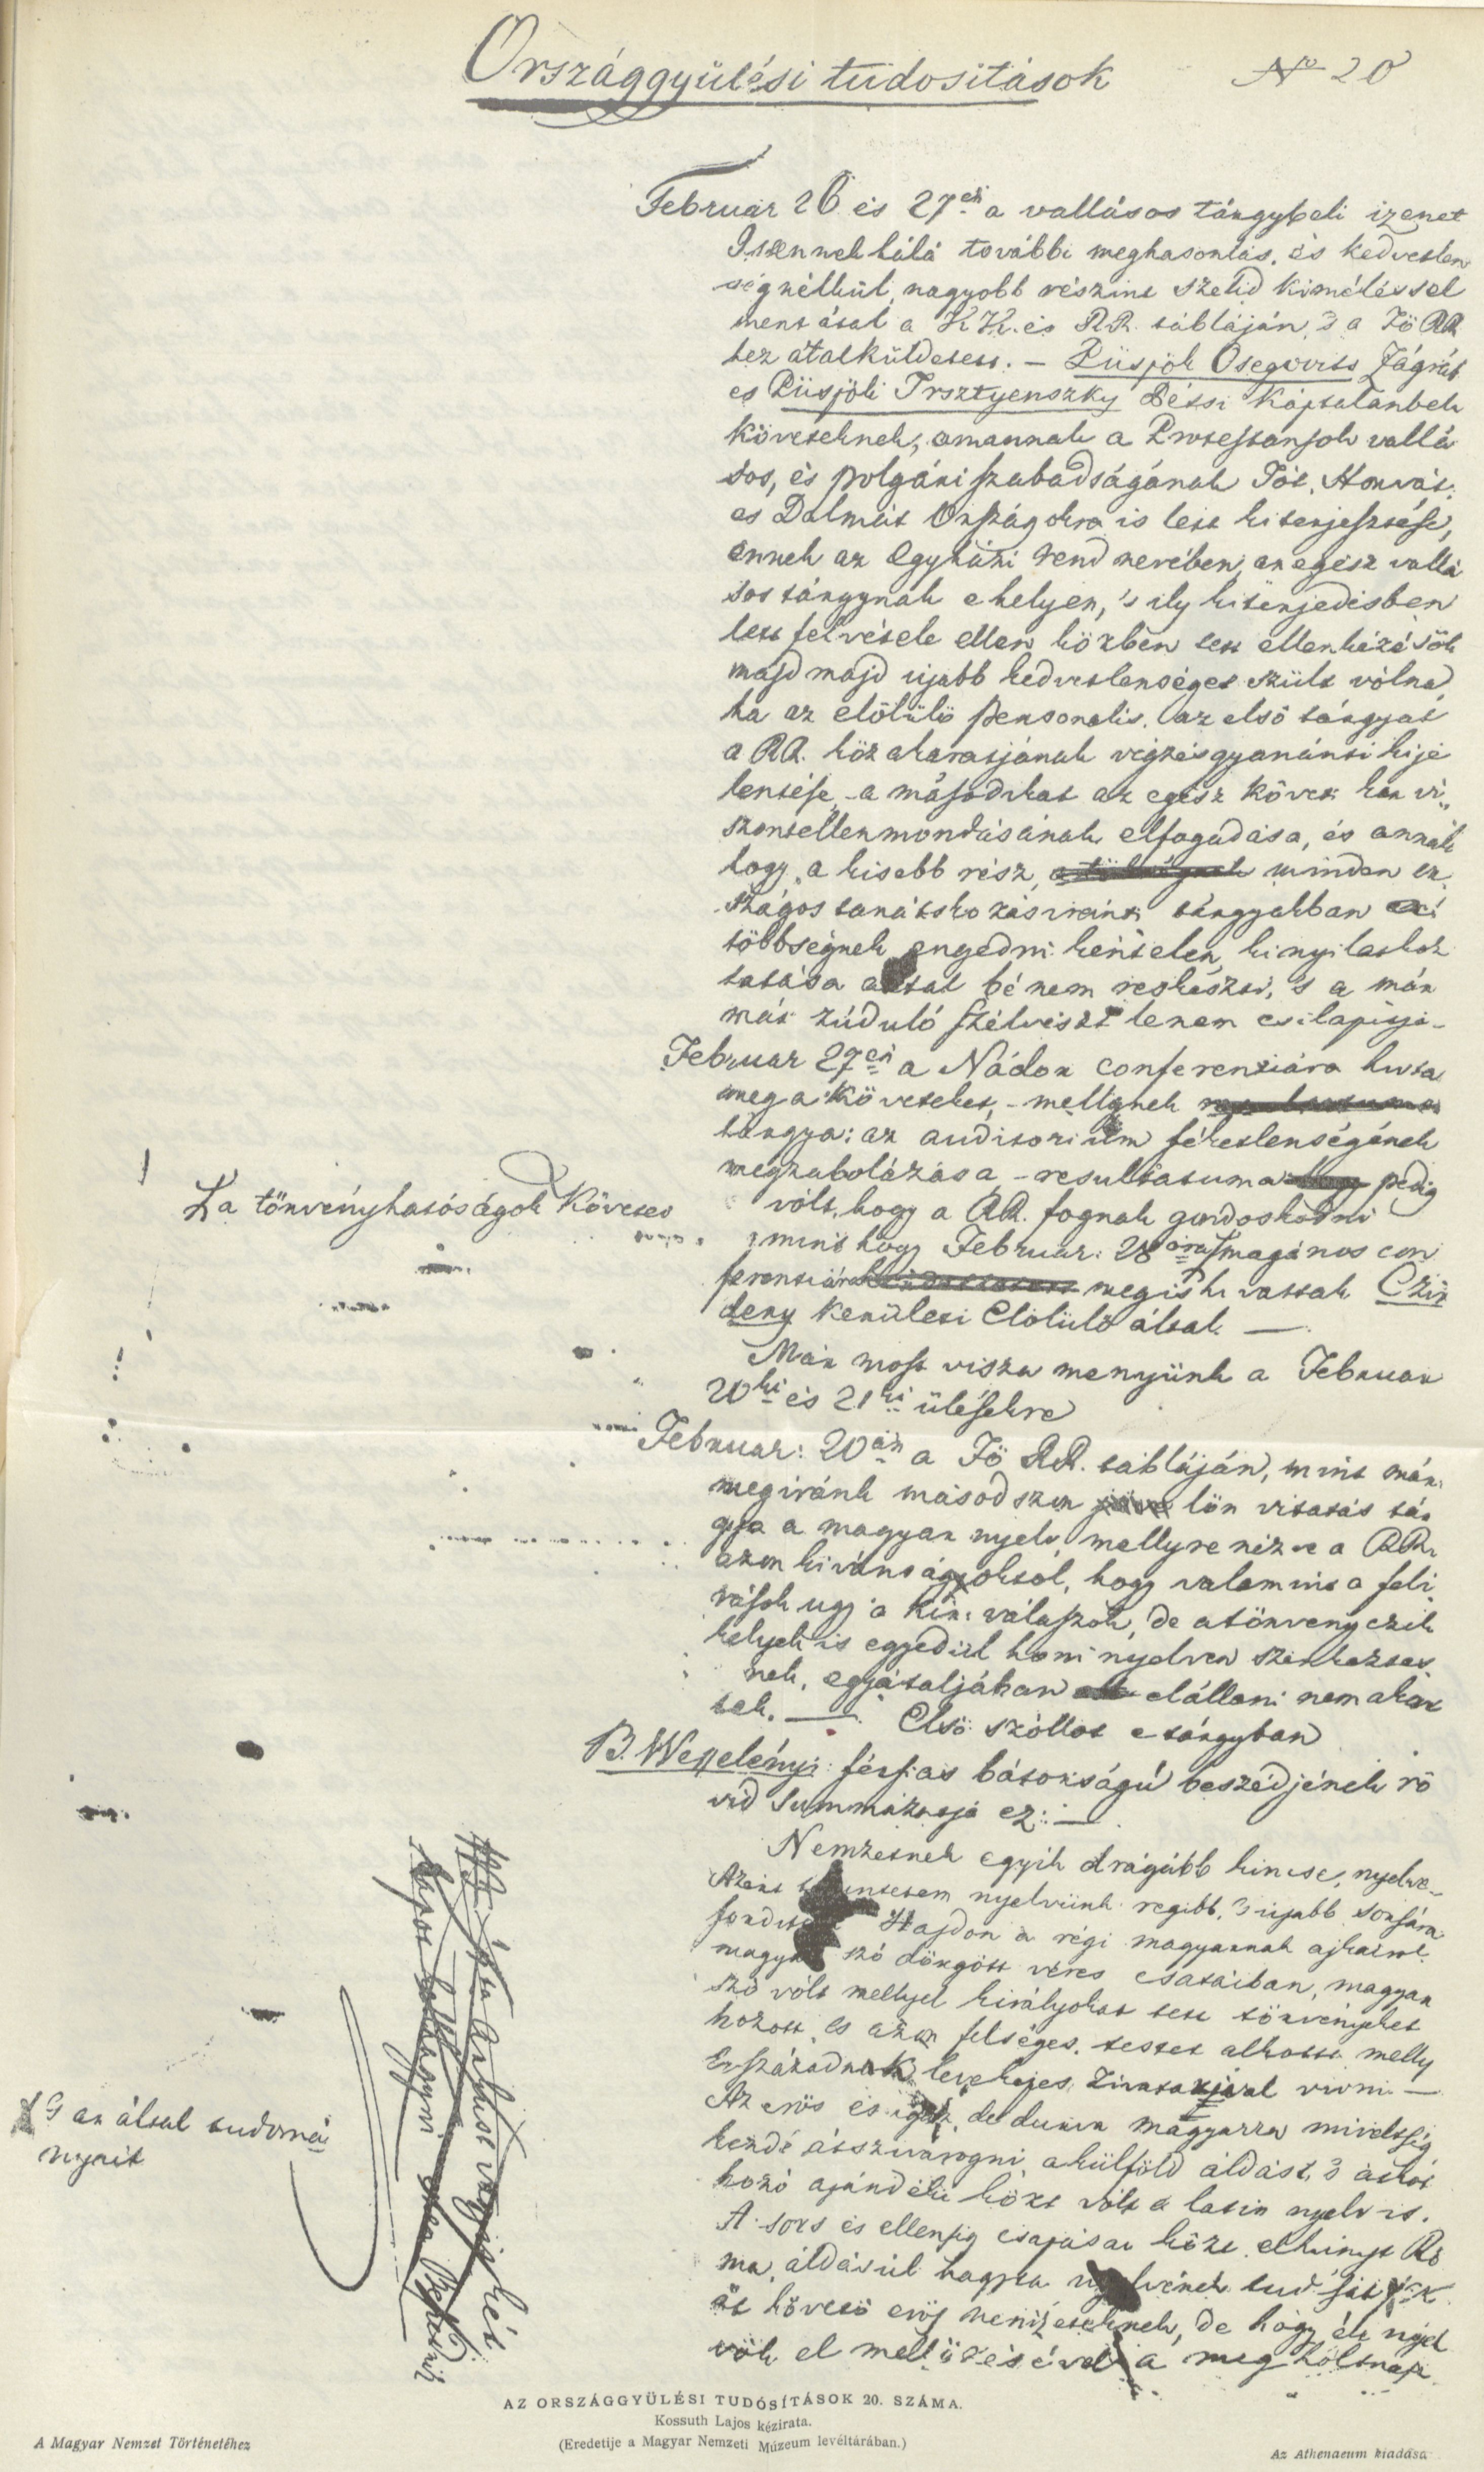 Országgyülési tudositások No 20
Februar 26 és 27en a vallásos tárgybeli izenet
Istennek hálá további meghasonlás, és kedvetlen
ség nélkül, nagyobb részint szelid kiméléssel
ment ásal a KK. és RR. tábláján, 's a Fö RR
hez átalküldetett. — Püspök Osegovits Zágráb
es Püspöki Trsztyenszky Bétsi Káptalanbeli
követeknek, amannak a Protestansok vallá
sos, és polgári szabadságának Tót, Horvát,
es Dalmát Országokra is lett kiterjesztése,
ennek az Egyházi rend nevében, az egész vallá
sos tárgynak e helyen, 's ily kiterjedésben
lett felvétele ellen közben tett ellenkezésök
majd majd ujabb kedvetlenséget szült vólna,
ha az elölülö personalis, az első tárgyat
a RR. köz akaratjának végzésgyanánti kije
lentése, - a másodikat az egész követi kar vi„
szontellenmondásának elfogadása, és annak
hogy a kisebb rész, minden or
szágos tanátskozásiránti tárgyakban a
többségnek engedni kéntelen, kinyilatkoz
tatása által bé nem rekeszti, 's a már
már zúduló szélvészt le nem csilapitja.
Februar 27én a Nádor conferentiára hivta
meg a követeket, - mellynek
tárgya: az auditorium féketlenségének
megzabolázása, - resultatuma pedig
vólt, hogy a RR. fognak gondoskodni
L a törvényhatóságok Követei
mint hogy Februar: 28ára magános con
ferentiára meg is hivattak Czin
dery kerületi Elölülö által. —
Már most vissza menyünk a Februar
20ki és 21ki ülésekre
Februar: 20án a Fö RR. tábláján, mint már
megiránk másodszor lön vitatás tár
gya a magyar nyelv, mellyre nézve a RR.
azon kivánságoktol, hogy valamint a feli
rások ugy a Kir: válaszok, de a törvényczik
kelyek is egyedül honi nyelven szerkeztes
nek, egyátaljában elállani nem akar
tak. — Első szóllot e tárgyban
B. Wesselényi: férfias bátorságú beszédjének rö
vid summázatja ez: —
Nemzetnek egyik drágább kincse, nyelve.
Azért nyelvünk régibb, 's ujabb sorsára
forditá Hajdon a régi magyarnak ajkairól
magyar szó dörgött véres csatáiban, magyar
szó vólt mellyel királyokat tett törvényeket
hozott, és azon felséges testet alkotta melly
Évszázadnak terhejes zivatarjával vivni —
Az erős és igaz, de durva magyarra miveltség
kezdé átszivárogni, a külföld áldást, 's átkot
hozó ajándéki közt vólt a latin nyelv is.
A sors és ellenség csapásai közt elhunyt Ró
ma, áldásúl hagyta nyelvének tudását az
öt követö erős nemzeteknek, de hogy élő nyel
vök el mellőzésével a meg hóltnak
's az által tudomá
nyait
AZ ORSZÁGGYÜLÉSI TUDÓSÍTÁSOK 20. SZÁMA.
Kossuth Lajos kézirata.
(Eredetije a Magyar Nemzeti Múzeum levéltárában.)
A Magyar Nemzet Történetéhez
Az Athenaeum kiadása